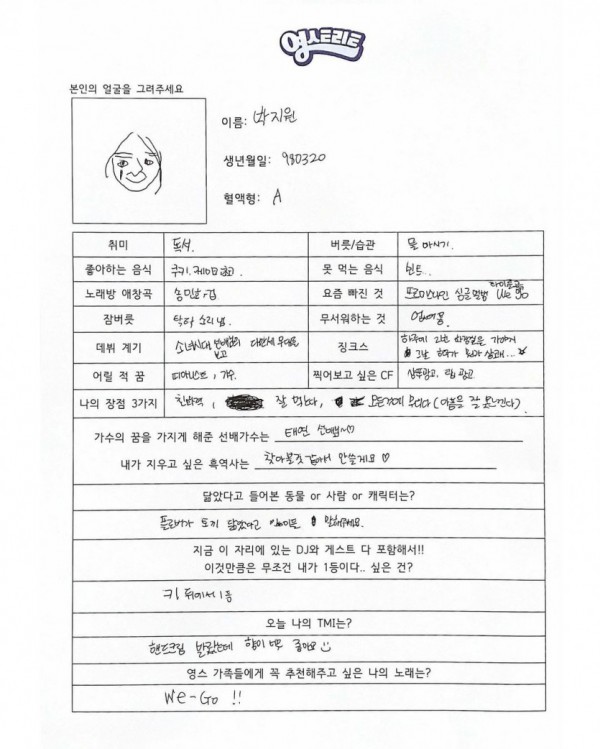 영스트리트
본인의 얼굴을 그려주세요
이름: 박지원
생년월일: 980320
혈액형: A
취미 독서 버릇/습관 물 마시기
좋아하는 음식 쿠키, 못 먹는 음식 민트
노래방 애창곡 요즘 빠진 것 프로미스나인 싱글앨범 타이틀곡 We go
잠버릇 소리 냄. 무서워하는 것
데뷔 계기 소녀시대 선배님의 다만세 무대를 보고 징크스
어릴 적 꿈 피아니스트, 가수 찍어보고 싶은 CF 샴푸광고, 립 광고
나의 장점 3가지 친화력, 잘 먹는다, 모든것에 무디다
가수의 꿈을 가지게 해준 선배가수는 태연 선배님~♡
내가 지우고 싶은 흑역사는 찾아볼것 같아서 안쓸게요 ♡
닮았다고 들어본 동물 or 사람 or 캐릭터는?
플로버가 토끼 닮았다고 많이들 말해주세요.
지금 이 자리에 있는 DJ와 게스트 다 포함해서!!
이것만큼은 무조건 내가 1등이다.. 싶은 건?
키 뒤에서 1등
오늘 나의 TMI는?
핸드크림 발랐는데 향이 너무 좋아요
영스 가족들에게 꼭 추천해주고 싶은 나의 노래는?
We-Go !!